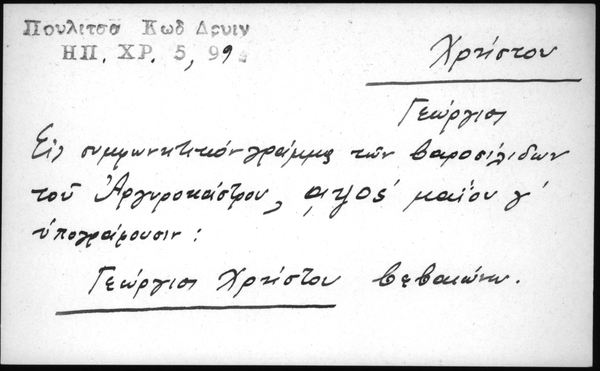 Πουλιτσα Κωδ Δρυιν
ΗΠ. ΧΡ. 5, 99
Χρήστου
Γεώργιος
Εἰς συμφωνητικόν γράμμα τῶν βαροσίλιδων
τοῦ Ἀργυροκάστρου, αψος' μαΐου γ'
ὑπογράφουσιν:
Γεώργιος Χρήστου βεβαιώνω.